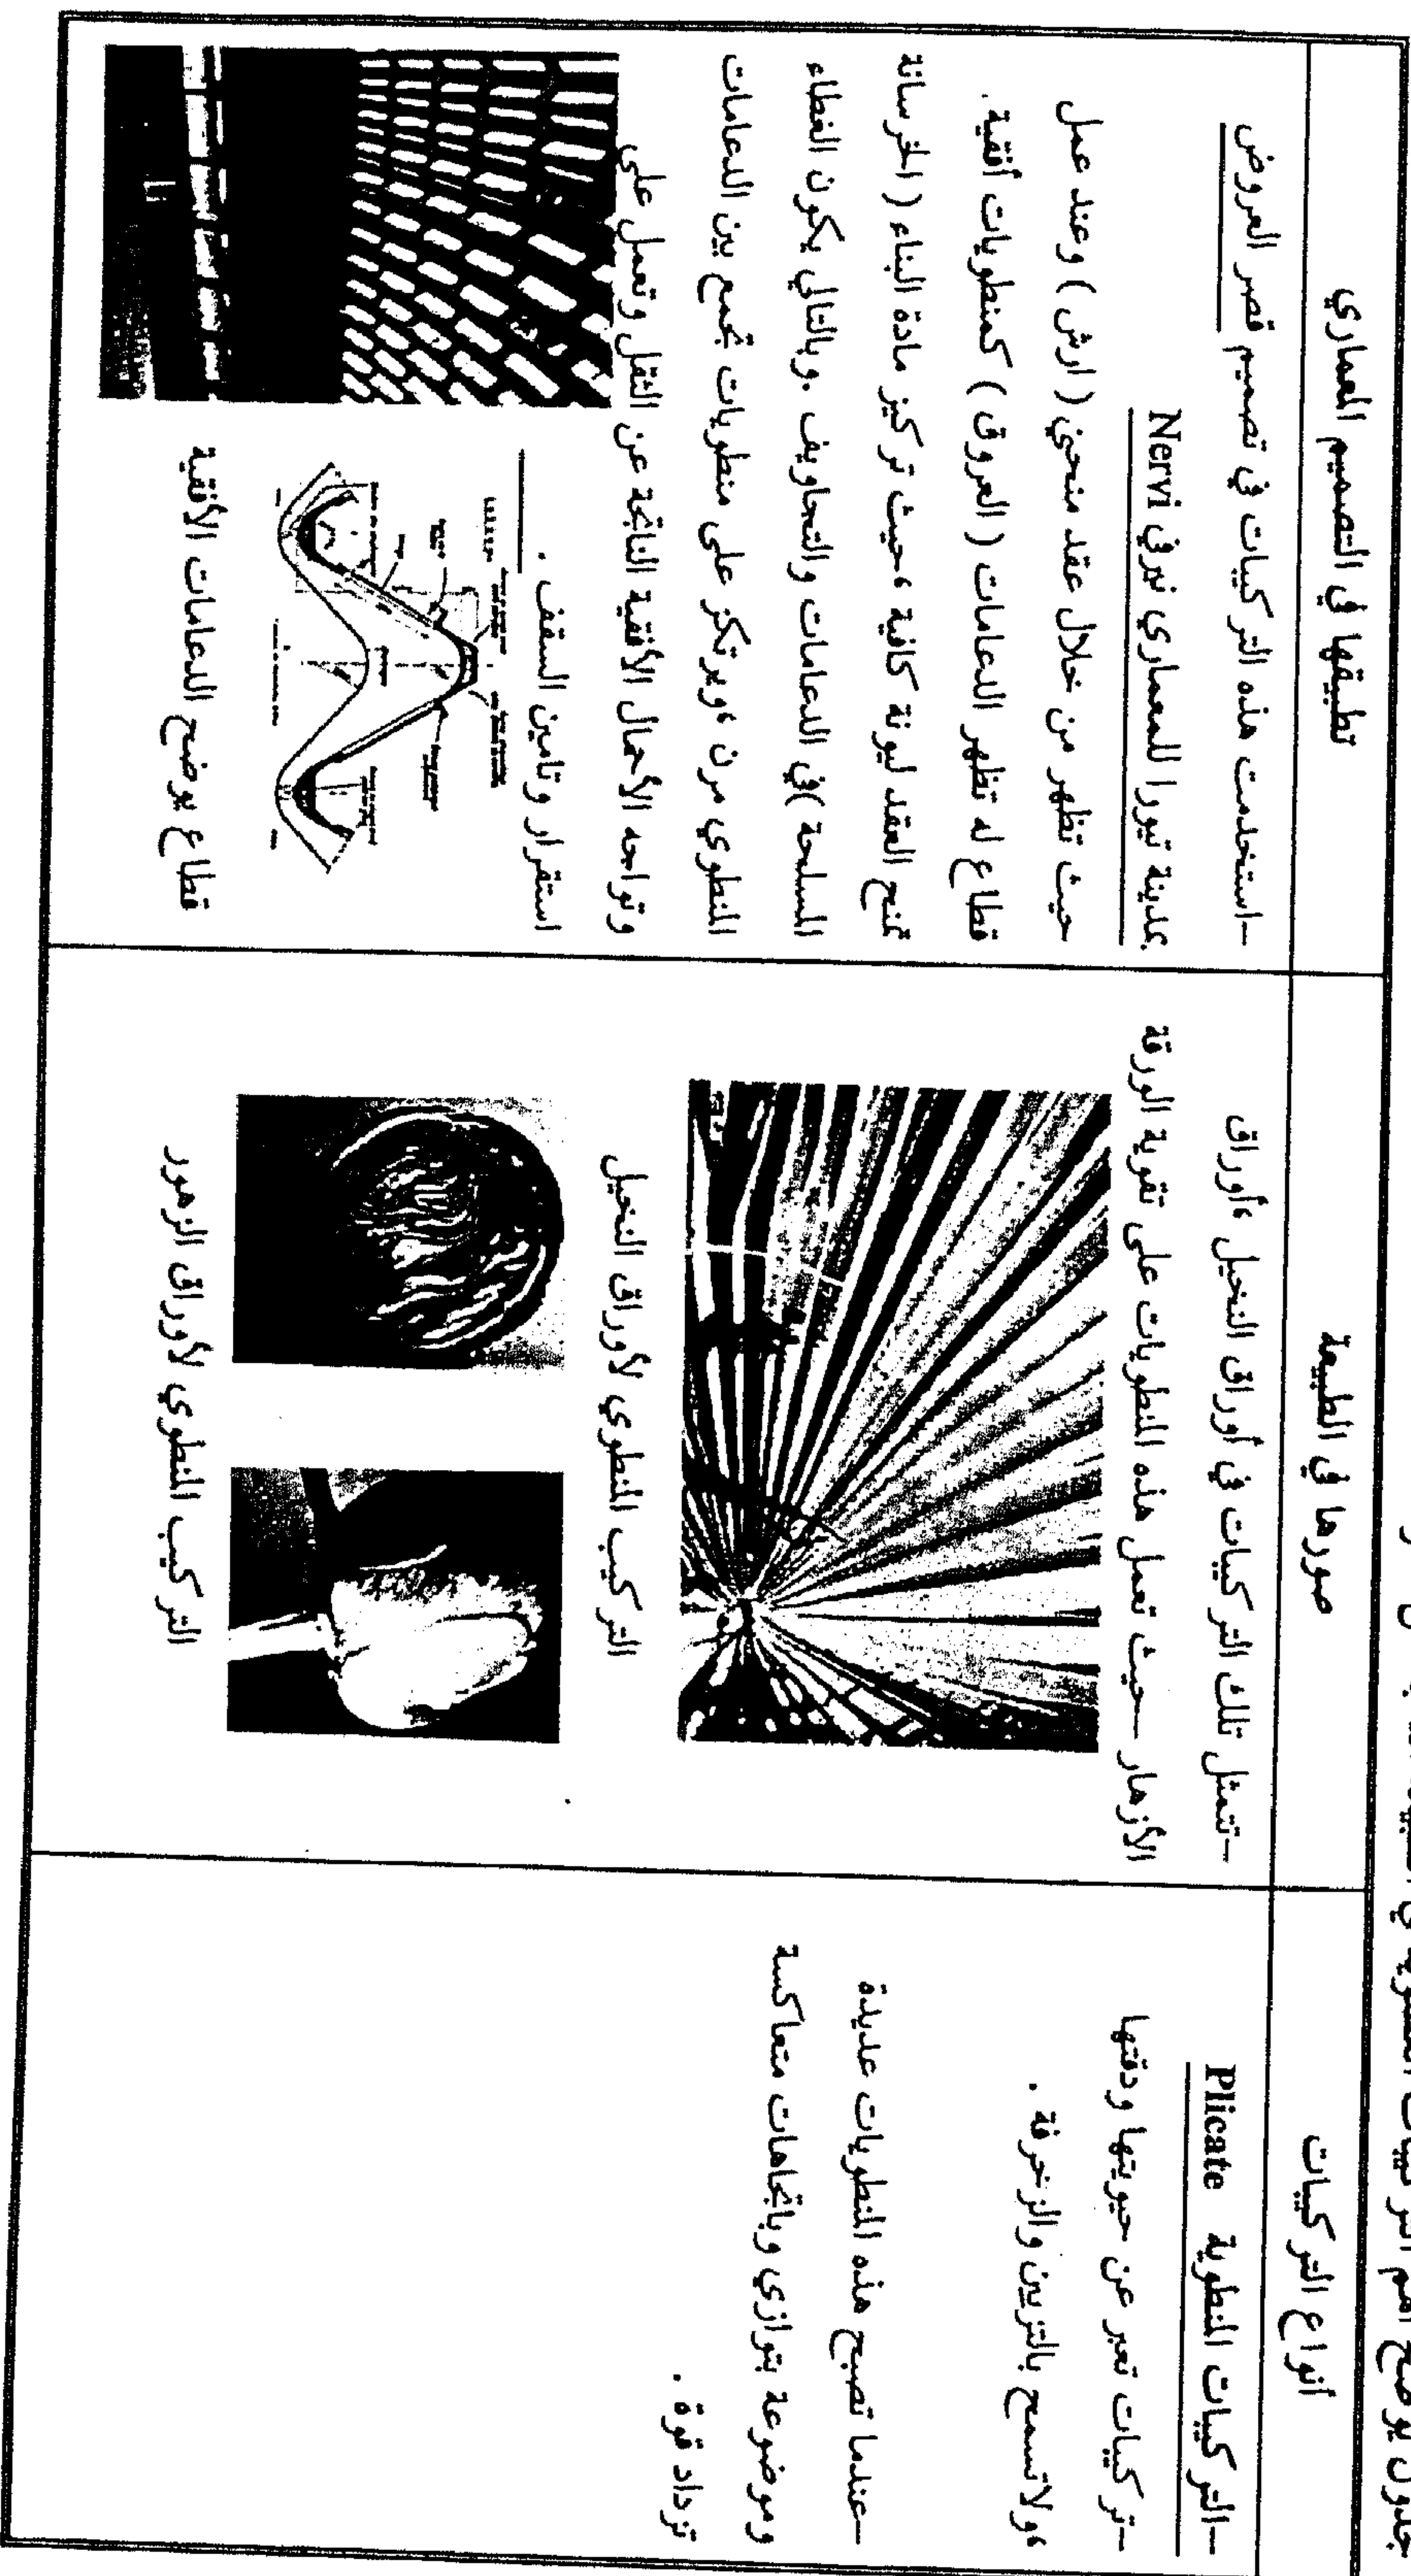 جدول يوضح أهم التركيبات
أنواع التركيبات
صورها في الطبيعة
تطبيقها في التصميم المعماري
–التركيبات المنطوية Plicate
–تركيبات تعبر عن حيويتها ودقتها
،ولاتسمح بالتزيين والزخرفة .
–عندما تصبح هذه المنطويات عديدة
وموضوعة بتوازي وباتجاهات متعاكسة
تزداد قوة .
–تتمثل تلك التركيبات في أوراق النخيل ،أوراق
الأزهار –حيث تعمل هذه المنطويات على تقوية الورقة
التركيب المنطوي لأوراق النخيل
التركيب المنطوي لأوراق الزهور
–استخدمت هذه التركيبات في تصميم قصر العروض
بمدينة تيورا للمعماري نيرفي Nervi
حيث تظهر من خلال عقد منحني (ارش) وعند عمل
قطاع له تظهر الدعامات (العروق) كمنطويات أفقية.
تمنح العقد ليونة كافية ،حيث تركيز مادة البناء (الخرسانة
المسلحة)في الدعامات والتجاويف .وبالتالي يكون الغطاء
المنطوي مرن ،ويرتكز على منطويات تجمع بين الدعامات
وتواجه الأحمال الأفقية الناتجة عن الثقل وتعمل على
استقرار وتامين السقف .
قطاع يوضح الدعامات الأفقية